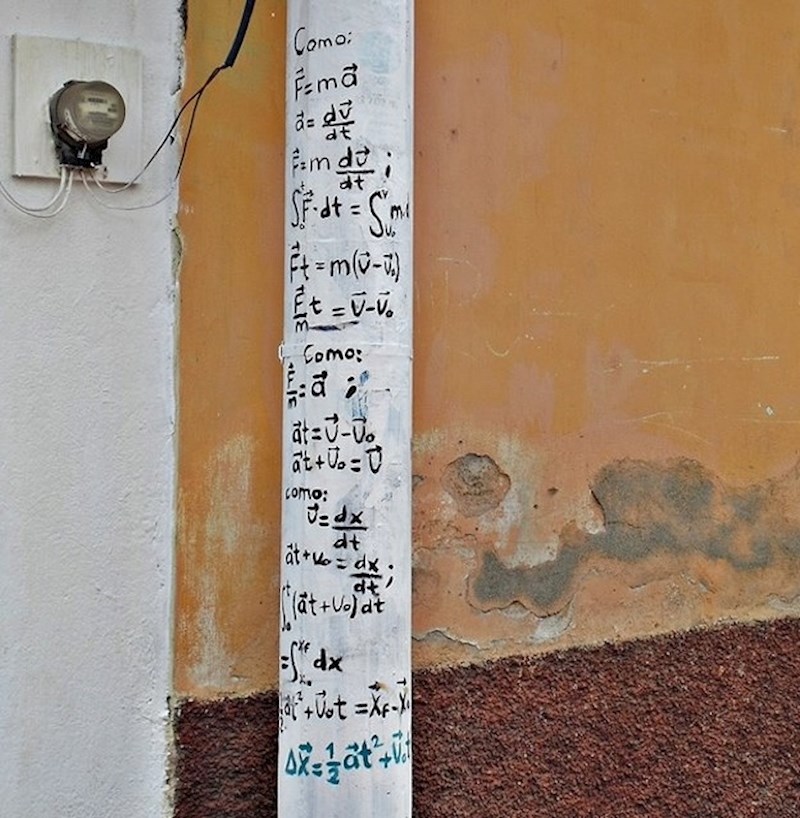 Como:
F⃗=ma⃗
a⃗=dv⃗/dt
F⃗=m dv⃗/dt ;
∫₀ᵗF⃗·dt = ∫ᵥ₀ᵛ m
F⃗t=m(v⃗-v⃗₀)
F⃗/m t = v⃗-v⃗₀
Como:
F⃗/m=a⃗ ;
a⃗t=v⃗-v⃗₀
a⃗t+v⃗₀=v⃗
como:
v⃗=dx/dt
a⃗t+v₀=dx/dt ;
∫₀ᵗ(a⃗t+v₀)dt
=∫ₓ₀ˣᶠ dx
½a⃗t²+v⃗₀t =x⃗f-x⃗₀
Δx⃗=½a⃗t²+v⃗₀t